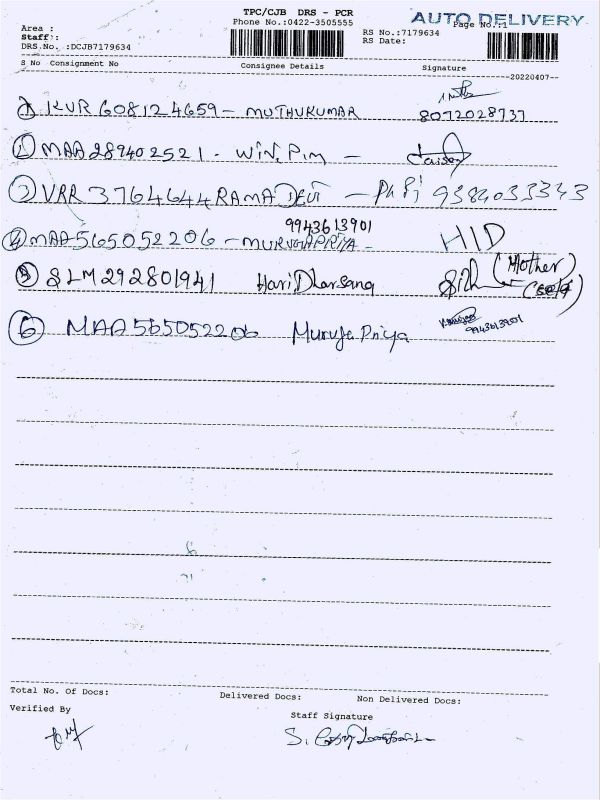 TPC/CJB DRS - PCR
AUTO DELIVERY
Area :
Phone No.:0422-3505555
Page No.:1
Staff :
RS No.:7179634
DRS.No. :DCJB7179634
RS Date:
S No Consignment No Consignee Details Signature
20220407
KUR 608124659 - MUTHUKUMAR 8072028737
1 MAA 289402521 - WIN. P.M -
VRR 3764644 RAMA DEVI - 9384033343
9943613901
4 MAA565052206 - MURUGAPRIYA - HID
5 SLM 292801941 HariDharsang (Mother)
6 MAA 565052206 Muruga Priya 9943613901
Total No. Of Docs: Delivered Docs: Non Delivered Docs:
Verified By
Staff Signature